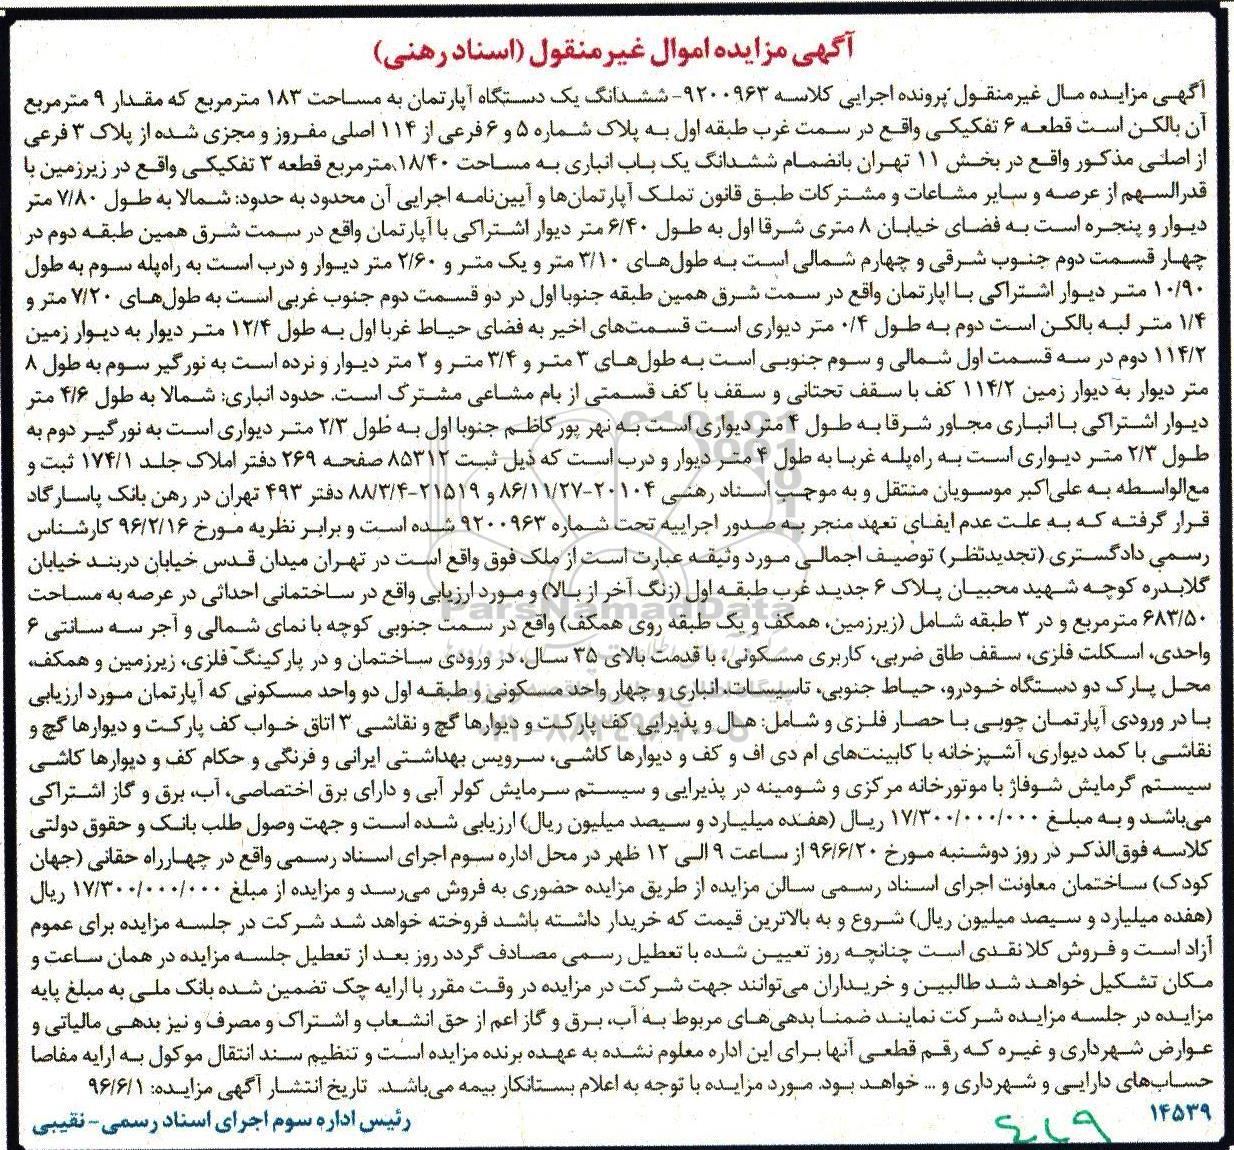 آگهی مزایده اموال غیرمنقول (اسناد رهنی)
آگهی مزایده مال غیرمنقول پرونده اجرایی کلاسه ۹۲۰۰۹۶۳- ششدانگ یک دستگاه آپارتمان به مساحت ۱۸۳ مترمربع که مقدار ۹ مترمربع
آن بالکن است قطعه ۶ تفکیکی واقع در سمت غرب طبقه اول به پلاک شماره ۵ و ۶ فرعی از ۱۱۴ اصلی مفروز و مجزی شده از پلاک ۳ فرعی
از اصلی مذکور واقع در بخش ۱۱ تهران بانضمام ششدانگ یک باب انباری به مساحت ۱۸/۴۰ مترمربع قطعه ۳ تفکیکی واقع در زیرزمین با
قدرالسهم از عرصه و سایر مشاعات و مشترکات طبق قانون تملک آپارتمان‌ها و آیین‌نامه اجرایی آن محدود به حدود: شمالا به طول ۷/۸۰ متر
دیوار و پنجره است به فضای خیابان ۸ متری شرقا اول به طول ۶/۴۰ متر دیوار اشتراکی با آپارتمان واقع در سمت شرق همین طبقه دوم در
چهار قسمت دوم جنوب شرقی و چهارم شمالی است به طول‌های ۳/۱۰ متر و یک متر و ۲/۶۰ متر دیوار و درب است به راه‌پله سوم به طول
۱۰/۹۰ متر دیوار اشتراکی با اپارتمان واقع در سمت شرق همین طبقه جنوبا اول در دو قسمت دوم جنوب غربی است به طول‌های ۷/۲۰ متر و
۱/۴ متر لبه بالکن است دوم به طول ۰/۴ متر دیواری است قسمت‌های اخیر به فضای حیاط غربا اول به طول ۱۲/۴ متر دیوار به دیوار زمین
۱۱۴/۲ دوم در سه قسمت اول شمالی و سوم جنوبی است به طول‌های ۳ متر و ۳/۴ متر و ۲ متر دیوار و نرده است به نورگیر سوم به طول ۸
متر دیوار به دیوار زمین ۱۱۴/۲ کف با سقف تحتانی و سقف با کف قسمتی از بام مشاعی مشترک است. حدود انباری: شمالا به طول ۴/۶ متر
دیوار اشتراکی با انباری مجاور شرقا به طول ۴ متر دیواری است به نهر پورکاظم جنوبا اول به طول ۲/۳ متر دیواری است به نورگیر دوم به
طول ۲/۳ متر دیواری است به راه‌پله غربا به طول ۴ متر دیوار و درب است که ذیل ثبت ۸۵۳۱۲ صفحه ۲۶۹ دفتر املاک جلد ۱۷۴/۱ ثبت و
مع‌الواسطه به علی‌اکبر موسویان منتقل و به موجب اسناد رهنی ۲۰۱۰۴-۸۶/۱۱/۲۷ و ۲۱۵۱۹-۸۸/۳/۴ دفتر ۴۹۳ تهران در رهن بانک پاسارگاد
قرار گرفته که به علت عدم ایفای تعهد منجر به صدور اجراییه تحت شماره ۹۲۰۰۹۶۳ شده است و برابر نظریه مورخ ۹۶/۲/۱۶ کارشناس
رسمی دادگستری (تجدیدنظر) توصیف اجمالی مورد وثیقه عبارت است از ملک فوق واقع است در تهران میدان قدس خیابان دربند خیابان
گلابدره کوچه شهید محبیان پلاک ۶ جدید غرب طبقه اول (زنگ آخر از بالا) و مورد ارزیابی واقع در ساختمانی احداثی در عرصه به مساحت
۶۸۳/۵۰ مترمربع و در ۳ طبقه شامل (زیرزمین، همکف و یک طبقه روی همکف) واقع در سمت جنوبی کوچه با نمای شمالی و آجر سه سانتی ۶
واحدی، اسکلت فلزی، سقف طاق ضربی، کاربری مسکونی، با قدمت بالای ۳۵ سال، در ورودی ساختمان و در پارکینگ فلزی، زیرزمین و همکف،
محل پارک دو دستگاه خودرو، حیاط جنوبی، تاسیسات، انباری و چهار واحد مسکونی و طبقه اول دو واحد مسکونی که آپارتمان مورد ارزیابی
با در ورودی آپارتمان چوبی با حصار فلزی و شامل: هال و پذیرایی کف پارکت و دیوارها گچ و نقاشی ۳ اتاق خواب کف پارکت و دیوارها گچ و
نقاشی با کمد دیواری، آشپزخانه با کابینت‌های ام دی اف و کف و دیوارها کاشی، سرویس بهداشتی ایرانی و فرنگی و حکام کف و دیوارها کاشی
سیستم گرمایش شوفاژ با موتورخانه مرکزی و شومینه در پذیرایی و سیستم سرمایش کولر آبی و دارای برق اختصاصی، آب، برق و گاز اشتراکی
می‌باشد و به مبلغ ۱۷/۳۰۰/۰۰۰/۰۰۰ ریال (هفده میلیارد و سیصد میلیون ریال) ارزیابی شده است و جهت وصول طلب بانک و حقوق دولتی
کلاسه فوق‌الذکر در روز دوشنبه مورخ ۹۶/۶/۲۰ از ساعت ۹ الی ۱۲ ظهر در محل اداره سوم اجرای اسناد رسمی واقع در چهارراه حقانی (جهان
کودک) ساختمان معاونت اجرای اسناد رسمی سالن مزایده از طریق مزایده حضوری به فروش می‌رسد و مزایده از مبلغ ۱۷/۳۰۰/۰۰۰/۰۰۰ ریال
(هفده میلیارد و سیصد میلیون ریال) شروع و به بالاترین قیمت که خریدار داشته باشد فروخته خواهد شد شرکت در جلسه مزایده برای عموم
آزاد است و فروش کلا نقدی است چنانچه روز تعیین شده با تعطیل رسمی مصادف گردد روز بعد از تعطیل جلسه مزایده در همان ساعت و
مکان تشکیل خواهد شد طالبین و خریداران می‌توانند جهت شرکت در مزایده در وقت مقرر با ارایه چک تضمین شده بانک ملی به مبلغ پایه
مزایده در جلسه مزایده شرکت نمایند ضمنا بدهی‌های مربوط به آب، برق و گاز اعم از حق انشعاب و اشتراک و مصرف و نیز بدهی مالیاتی و
عوارض شهرداری و غیره که رقم قطعی آنها برای این اداره معلوم نشده به عهده برنده مزایده است و تنظیم سند انتقال موکول به ارایه مفاصا
حساب‌های دارایی و شهرداری و ... خواهد بود. مورد مزایده با توجه به اعلام بستانکار بیمه می‌باشد. تاریخ انتشار آگهی مزایده: ۹۶/۶/۱
۱۴۵۳۹
رئیس اداره سوم اجرای اسناد رسمی- نقیبی
ParsNamadData